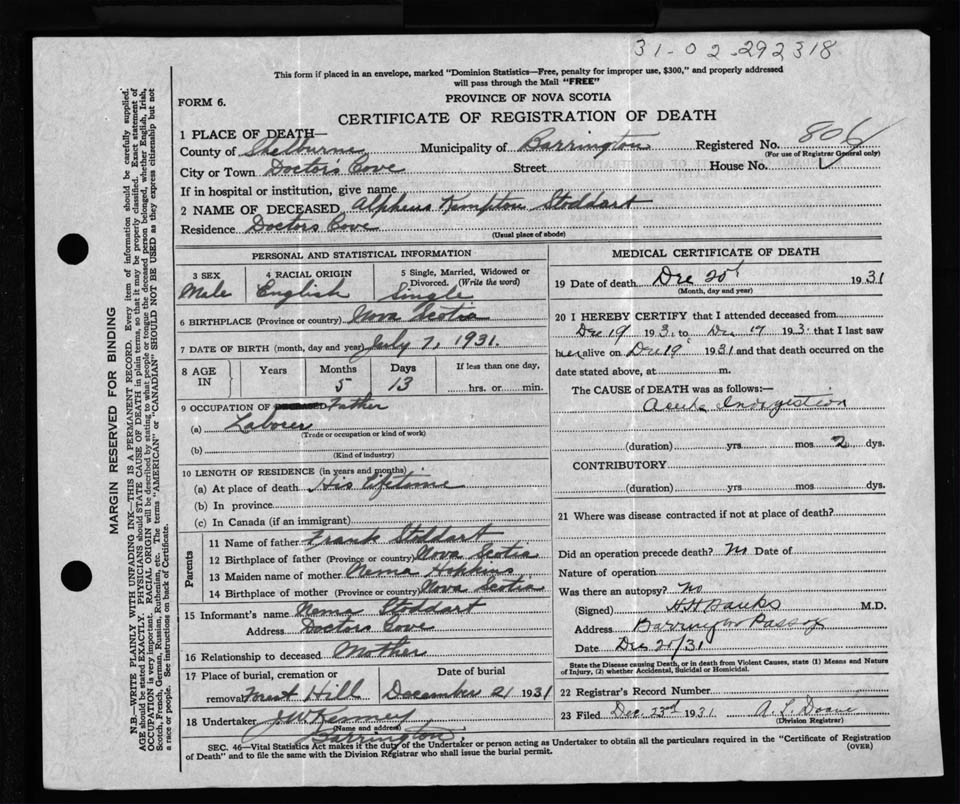 31-02-292318
This form if placed in an envelope, marked "Dominion Statistics—Free, penalty for improper use, $300," and properly addressed
will pass through the Mail "FREE"
FORM 6.
PROVINCE OF NOVA SCOTIA
CERTIFICATE OF REGISTRATION OF DEATH
1 PLACE OF DEATH—
County of Shelburne Municipality of Barrington Registered No. 806
(For use of Registrar General only)
City or Town Doctor's Cove Street House No.
If in hospital or institution, give name
2 NAME OF DECEASED Alpheus Kempton Stoddart
Residence Doctors Cove
(Usual place of abode)
PERSONAL AND STATISTICAL INFORMATION
3 SEX Male
4 RACIAL ORIGIN English
5 Single, Married, Widowed or Divorced. (Write the word) Single
6 BIRTHPLACE (Province or country) Nova Scotia
7 DATE OF BIRTH (month, day and year) July 7, 1931.
8 AGE IN Years Months Days If less than one day,
5 13 hrs. or min.
9 OCCUPATION OF Father
(a) Laborer
(Trade or occupation or kind of work)
(b)
(Kind of industry)
10 LENGTH OF RESIDENCE (in years and months)
(a) At place of death His lifetime
(b) In province
(c) In Canada (if an immigrant)
Parents
11 Name of father Frank Stoddart
12 Birthplace of father (Province or country) Nova Scotia
13 Maiden name of mother Nema Hopkins
14 Birthplace of mother (Province or country) Nova Scotia
15 Informant's name Nema Stoddart
Address Doctors Cove
16 Relationship to deceased Mother
17 Place of burial, cremation or Date of burial
removal Forest Hill December 21 1931
18 Undertaker J W Kenney
(Name and address)
Barrington
MEDICAL CERTIFICATE OF DEATH
19 Date of death Dec 20th 1931
(Month, day and year)
20 I HEREBY CERTIFY that I attended deceased from
Dec 19 193 to Dec 19 193 that I last saw
him alive on Dec 19 1931 and that death occurred on the
date stated above, at m.
The CAUSE OF DEATH was as follows:—
Acute Indigestion
(duration) yrs mos 2 dys.
CONTRIBUTORY
(duration) yrs. mos. dys.
21 Where was disease contracted if not at place of death?
Did an operation precede death? No Date of
Nature of operation
Was there an autopsy? No
(Signed) H H Banks M.D.
Address Barrington Passage
Date Dec 21/31
State the Disease causing Death, or in death from Violent Causes, state (1) Means and Nature
of Injury, (2) whether Accidental, Suicidal or Homicidal.
22 Registrar's Record Number
23 Filed Dec 23rd 1931 A. L. Doane
(Division Registrar)
SEC. 46—Vital Statistics Act makes it the duty of the Undertaker or person acting as Undertaker to obtain all the particulars required in the "Certificate of Registration
of Death" and to file the same with the Division Registrar who shall issue the burial permit.
(OVER)
MARGIN RESERVED FOR BINDING
N.B.—WRITE PLAINLY WITH UNFADING INK—THIS IS A PERMANENT RECORD. Every item of information should be carefully supplied.
AGE should be stated EXACTLY. PHYSICIANS should STATE CAUSE OF DEATH in plain terms, so that it may be properly classified. Exact statement of
OCCUPATION is very important. RACIAL ORIGIN will be described by stating to what people or tongue the deceased person belonged, whether English, Irish,
Scotch, French, German, Russian, Ruthenian, etc. The terms "AMERICAN" or "CANADIAN" SHOULD NOT BE USED as they express citizenship but not
a race or people. See instructions on back of Certificate.